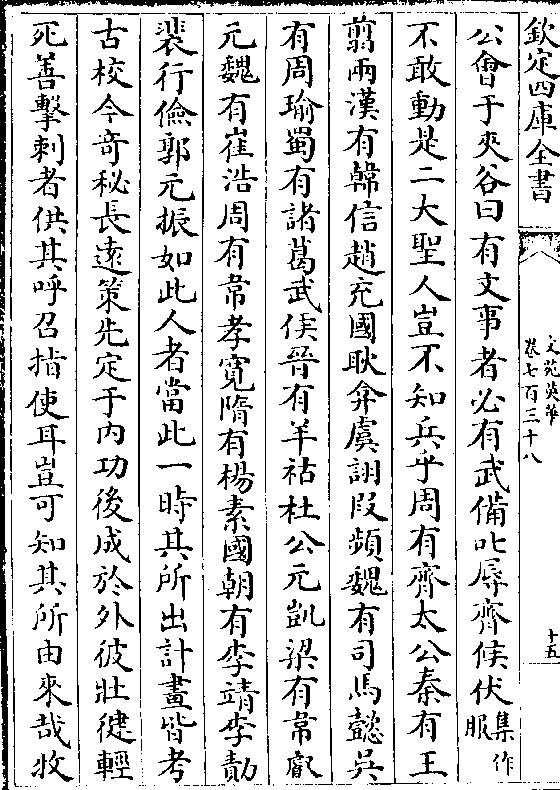 欽定四庫全書
文苑英華
卷七百三十八
十五
公會于夾谷曰有文事者必有武備叱辱齊侯伏集作服
不敢動是二大聖人豈不知兵乎周有齊太公秦有王
翦兩漢有韓信趙充國耿弇虞詡段頻魏有司馬懿吳
有周瑜蜀有諸葛武侯晉有羊祜杜公元凱梁有韋叡
元魏有崔浩周有韋孝寛隋有楊素國朝有李靖李勣
裴行儉郭元振如此人者當此一時其所出計畫皆考
古校今奇秘長遠策先定于内功後成於外彼壯健輕
死善擊刺者供其呼召指使耳豈可知其所由來哉牧